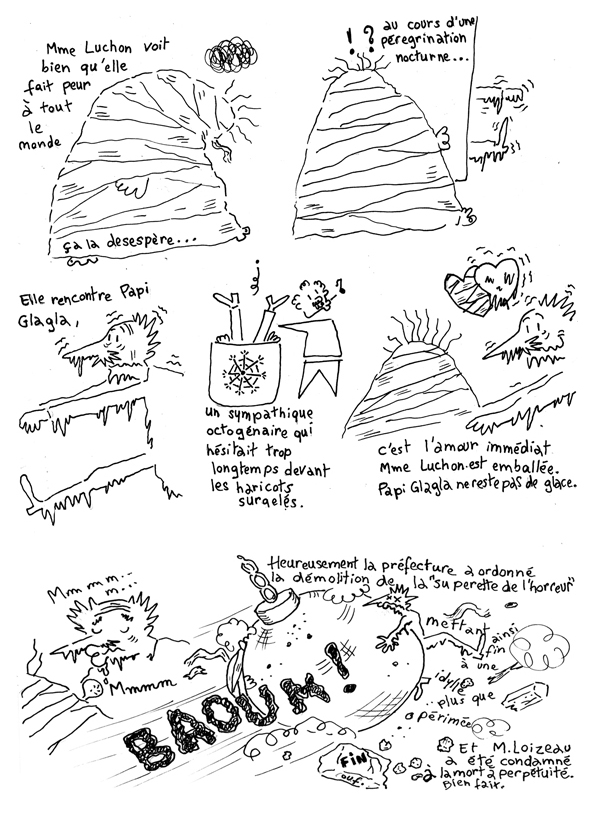 Mme Luchon voit
bien qu'elle
fait peur
à tout
le
monde
ça la desespère...
! ?
au cours d'une
pérégrination
nocturne...
Elle rencontre Papi
Glagla,
un sympathique
octogénaire qui
hésitait trop
longtemps devant
les haricots
surgelés.
c'est l'amour immédiat
Mme Luchon est emballée.
Papi Glagla ne reste pas de glace.
Mmm m...
m...
Mmmm
Heureusement la préfecture a ordonné
la démolition de la "superette de l'horreur"
mettant ainsi
fin
à une
idylle
plus que
périmée
BAOUM!
FIN
ouf.
Et M. Loizeau
a été condamné
à la mort à perpétuité.
Bien fait.